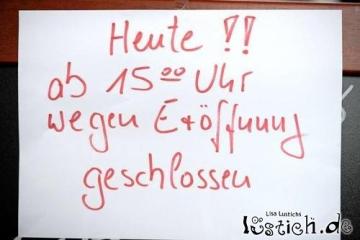 Heute !!
ab 15⁰⁰ Uhr
wegen Eröffnung
geschlossen
Lisa Lustichs
lustich.de